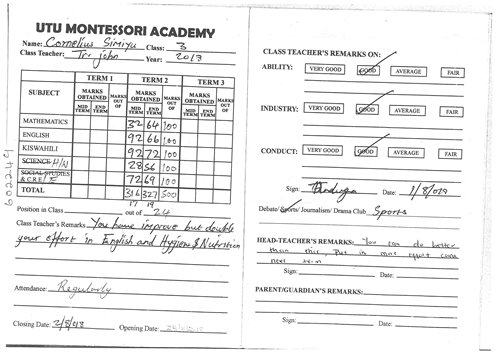 UTU MONTESSORI ACADEMY
Name: Cornelius Simiyu Class: 3
Class Teacher: Tr. john Year: 2013
SUBJECT TERM 1 TERM 2 TERM 3
MARKS OBTAINED MARKS OUT OF MARKS OBTAINED MARKS OUT OF MARKS OBTAINED MARKS OUT OF
MID TERM END TERM MID TERM END TERM MID TERM END TERM
MATHEMATICS 32 64 100
ENGLISH 92 66 100
KISWAHILI 92 72 100
SCIENCE H/N 28 56 100
SOCIAL STUDIES & C.R.E/ 72 69 100
TOTAL 316 327 500
Position in Class 17 19 out of 24
Class Teacher's Remarks You have improve but double
your effort in English and Hygien & Nutrition
Attendance: Regularly
Closing Date: 2/8/013 Opening Date:
602249
CLASS TEACHER'S REMARKS ON:
ABILITY: VERY GOOD GOOD AVERAGE FAIR
INDUSTRY: VERY GOOD GOOD AVERAGE FAIR
CONDUCT: VERY GOOD GOOD AVERAGE FAIR
Sign: Date: 1/8/013
Debate/ Sports/ Journalism/ Drama Club Sports
HEAD-TEACHER'S REMARKS: You can do better
than this, Put in more effort come
next term
Sign: Date:
PARENT/GUARDIAN'S REMARKS:
Sign: Date: